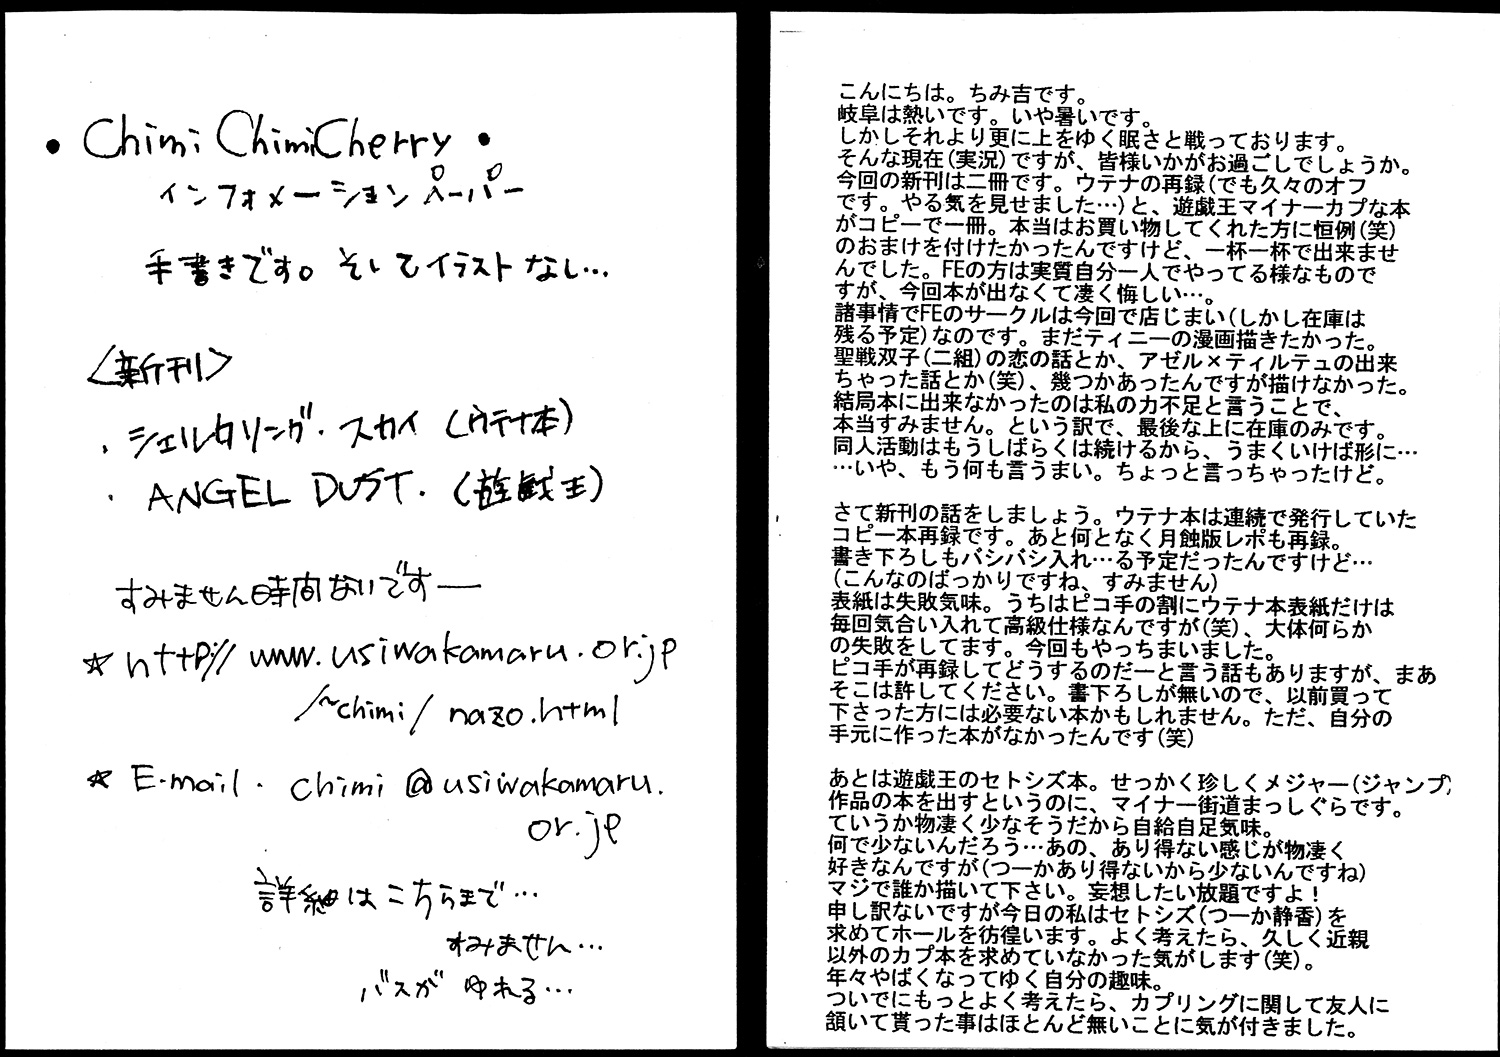 • Chimi ChimiCherry •
インフォメーションペーパー
手書きです。そしてイラストなし…
〈新刊〉
・シェルタリング・スカイ（ウテナ本）
・ANGEL DUST.（遊戯王）
すみません時間ないですー
☆ http://www.usiwakamaru.or.jp
/~chimi/nazo.html
☆ E-mail. chimi@usiwakamaru.
or.jp
詳細はこちらまで…
すみません…
バスがゆれる…
こんにちは。ちみ吉です。
岐阜は熱いです。いや暑いです。
しかしそれより更に上をゆく眠さと戦っております。
そんな現在(実況)ですが、皆様いかがお過ごしでしょうか。
今回の新刊は二冊です。ウテナの再録(でも久々のオフ
です。やる気を見せました…)と、遊戯王マイナーカプな本
がコピーで一冊。本当はお買い物してくれた方に恒例(笑)
のおまけを付けたかったんですけど、一杯一杯で出来ませ
んでした。FEの方は実質自分一人でやってる様なもので
すが、今回本が出なくて凄く悔しい…。
諸事情でFEのサークルは今回で店じまい(しかし在庫は
残る予定)なのです。まだティニーの漫画描きたかった。
聖戦双子(二組)の恋の話とか、アゼル×ティルテュの出来
ちゃった話とか(笑)、幾つかあったんですが描けなかった。
結局本に出来なかったのは私の力不足と言うことで、
本当すみません。という訳で、最後な上に在庫のみです。
同人活動はもうしばらくは続けるから、うまくいけば形に…
…いや、もう何も言うまい。ちょっと言っちゃったけど。
さて新刊の話をしましょう。ウテナ本は連続で発行していた
コピー本再録です。あと何となく月蝕版レポも再録。
書き下ろしもバシバシ入れ…る予定だったんですけど…
(こんなのばっかりですね、すみません)
表紙は失敗気味。うちはピコ手の割にウテナ本表紙だけは
毎回気合い入れて高級仕様なんですが(笑)、大体何らか
の失敗をしてます。今回もやっちまいました。
ピコ手が再録してどうするのだーと言う話もありますが、まあ
そこは許してください。書下ろしが無いので、以前買って
下さった方には必要ない本かもしれません。ただ、自分の
手元に作った本がなかったんです(笑)
あとは遊戯王のセトシズ本。せっかく珍しくメジャー(ジャンプ)
作品の本を出すというのに、マイナー街道まっしぐらです。
ていうか物凄く少なそうだから自給自足気味。
何で少ないんだろう…あの、あり得ない感じが物凄く
好きなんですが(つーかあり得ないから少ないんですね)
マジで誰か描いて下さい。妄想したい放題ですよ！
申し訳ないですが今日の私はセトシズ(つーか静香)を
求めてホールを彷徨います。よく考えたら、久しく近親
以外のカプ本を求めていなかった気がします(笑)。
年々やばくなってゆく自分の趣味。
ついでにもっとよく考えたら、カプリングに関して友人に
頷いて貰った事はほとんど無いことに気が付きました。